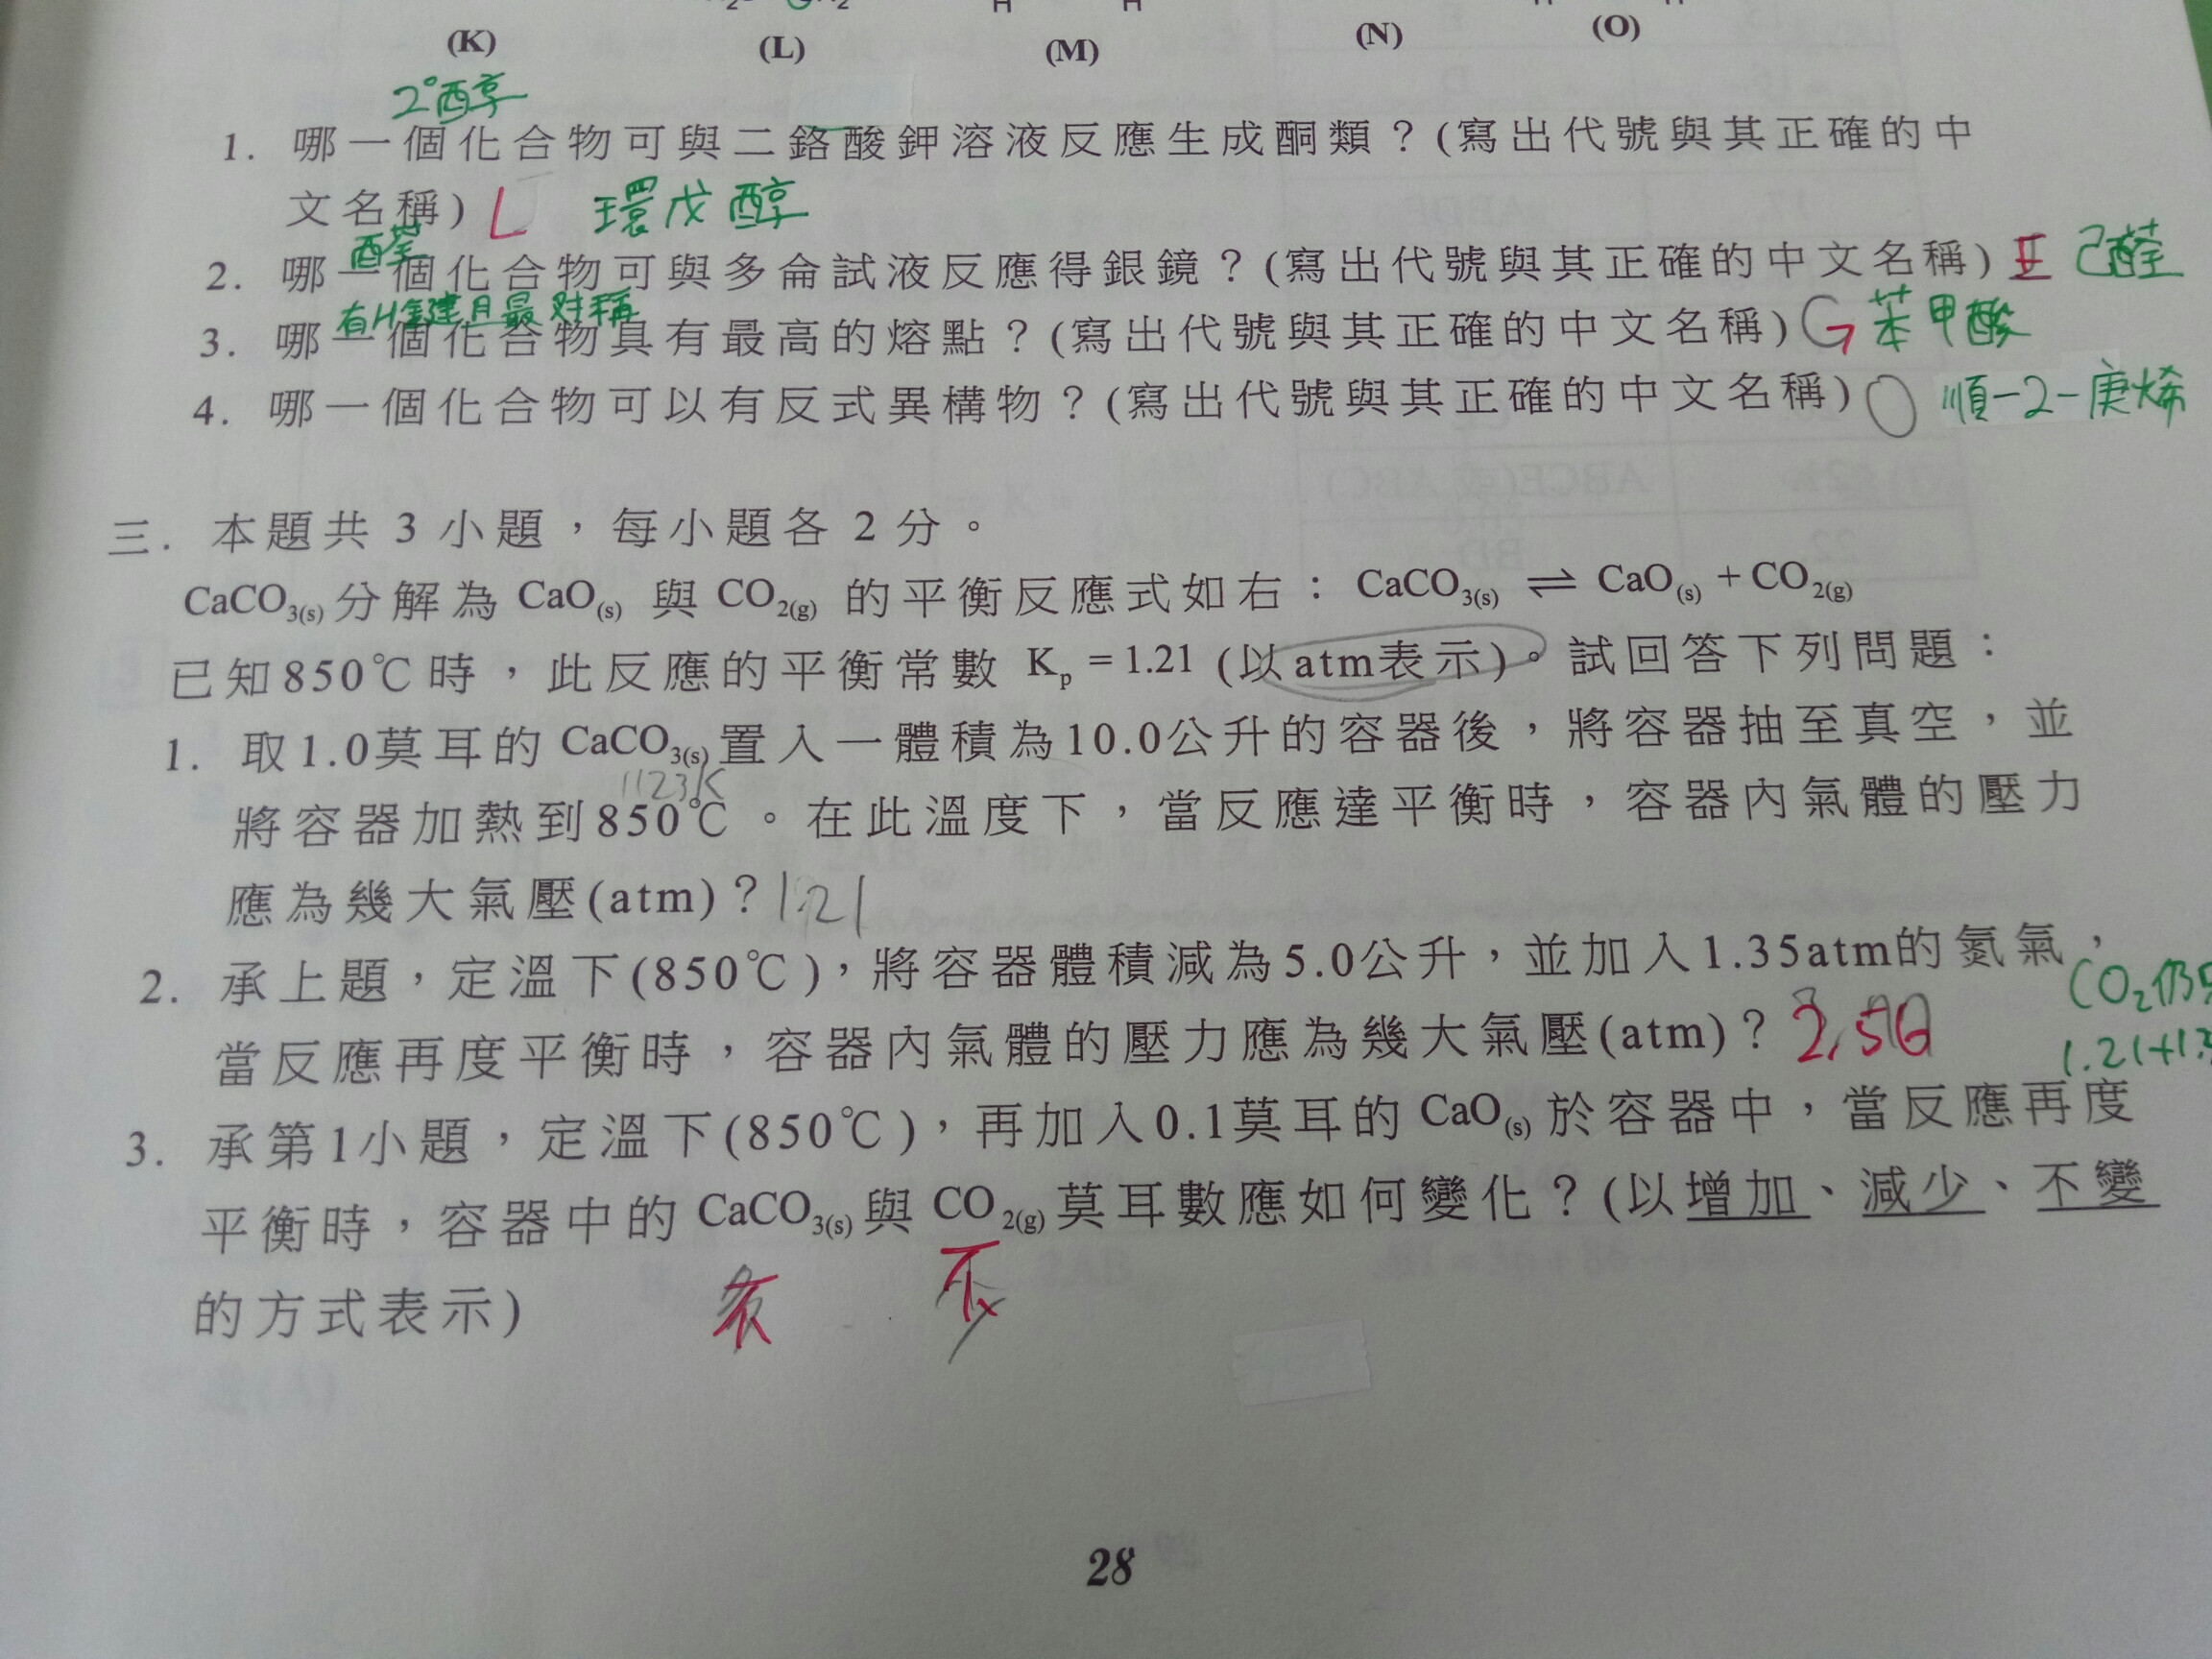 (K) (L) (M) (N) (O)
2°醇
1. 哪一個化合物可與二鉻酸鉀溶液反應生成酮類？(寫出代號與其正確的中
文名稱) L 環戊醇
醛
2. 哪一個化合物可與多侖試液反應得銀鏡？(寫出代號與其正確的中文名稱) E 己醛
有H鍵且最对稱
3. 哪一個化合物具有最高的熔點？(寫出代號與其正確的中文名稱) G 苯甲酸
4. 哪一個化合物可以有反式異構物？(寫出代號與其正確的中文名稱) O 順-2-庚烯
三. 本題共 3 小題，每小題各 2 分。
CaCO3(s) 分解為 CaO(s) 與 CO2(g) 的平衡反應式如右：CaCO3(s) ⇌ CaO(s) + CO2(g)
已知850℃時，此反應的平衡常數 Kp = 1.21 (以atm表示)。試回答下列問題：
1. 取1.0莫耳的 CaCO3(s) 置入一體積為10.0公升的容器後，將容器抽至真空，並
1123K
將容器加熱到850℃。在此溫度下，當反應達平衡時，容器內氣體的壓力
應為幾大氣壓(atm)？1.21
2. 承上題，定溫下(850℃)，將容器體積減為5.0公升，並加入1.35atm的氮氣，
CO2仍
當反應再度平衡時，容器內氣體的壓力應為幾大氣壓(atm)？2.56
1.21+1.3
3. 承第1小題，定溫下(850℃)，再加入0.1莫耳的 CaO(s) 於容器中，當反應再度
平衡時，容器中的 CaCO3(s) 與 CO2(g) 莫耳數應如何變化？(以增加、減少、不變
的方式表示) 不 不
28